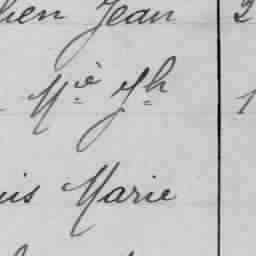 lien Jean 2
Mie Jh 1
uis Marie